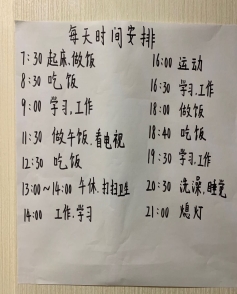 每天时间安排
7:30 起床、做饭
8:30 吃饭
9:00 学习、工作
11:30 做午饭、看电视
12:30 吃饭
13:00~14:00 午休、打扫卫生
14:00 工作、学习
16:00 运动
16:30 学习、工作
18:00 做饭
18:40 吃饭
19:30 学习、工作
20:30 洗澡、睡觉
21:00 熄灯